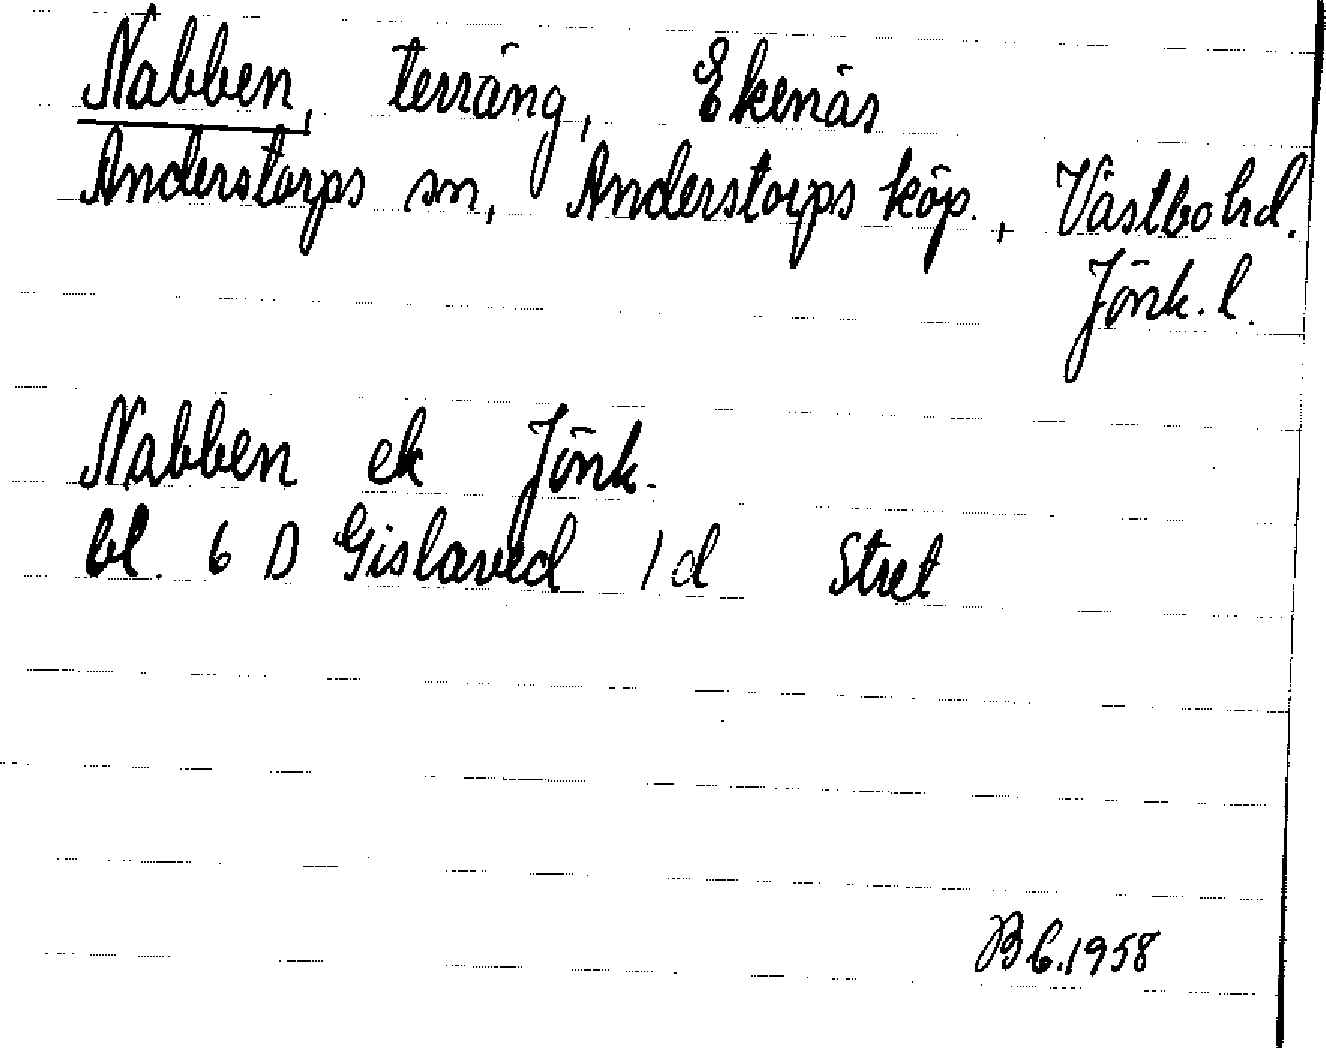 Nabben, terräng, Ekenäs
Anderstorps sn, Anderstorps köp., Västbo hd.
Jönk. l.
Nabben ek Jönk.
bl. 6 D Gislaved 1 d Stret
B 6. 1958